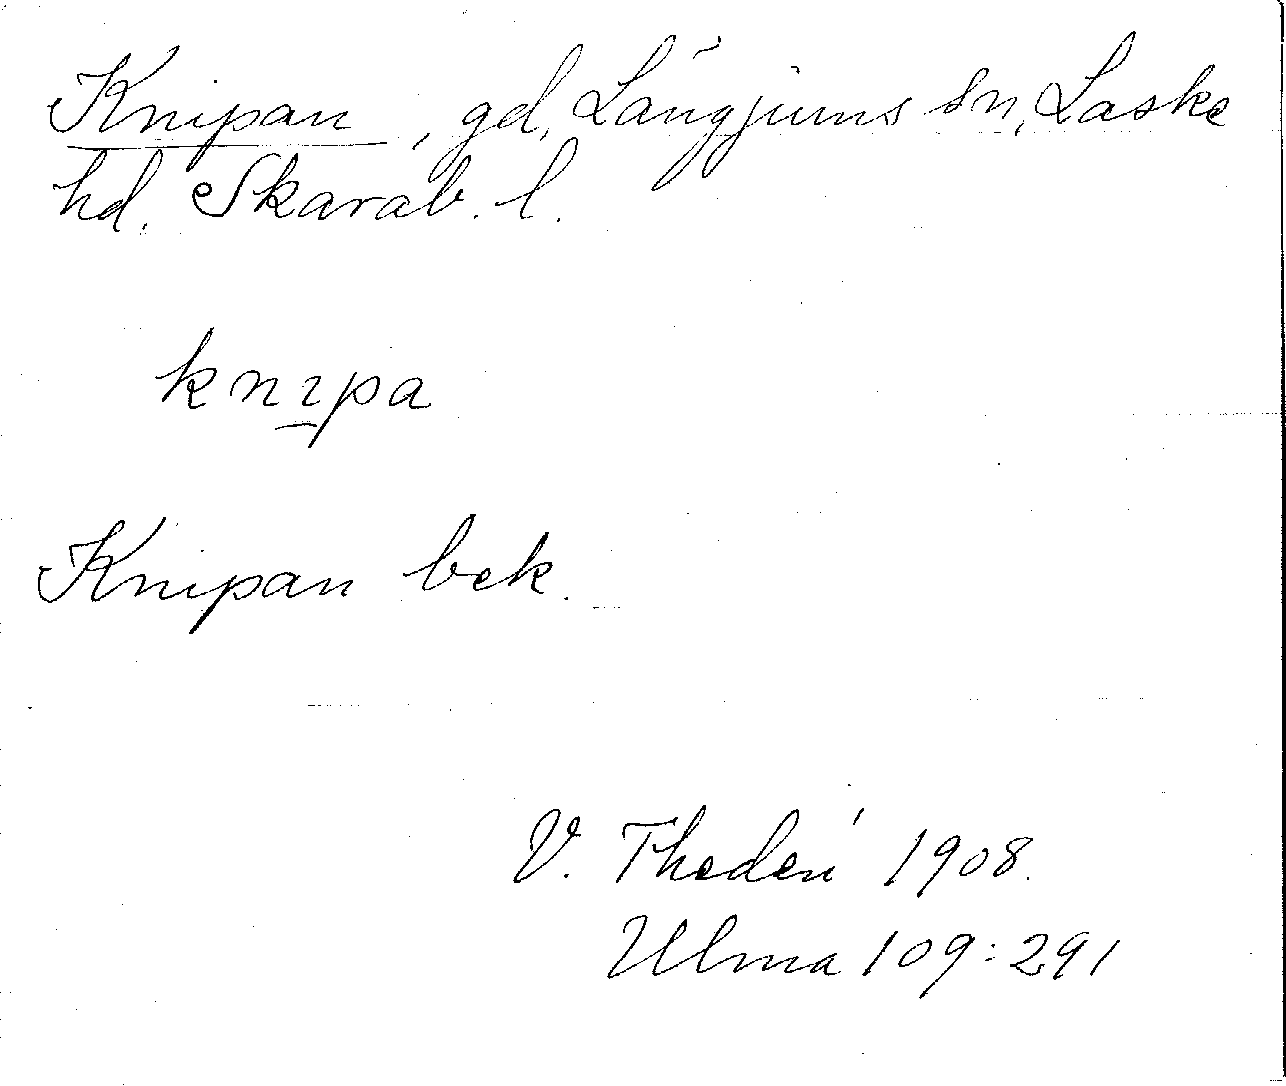 Knipan, gd, Långjums sn, Laske
hd. Skarab. l.
knıpa
Knipan bek.
V. Thedén 1908.
Ulma 109:291